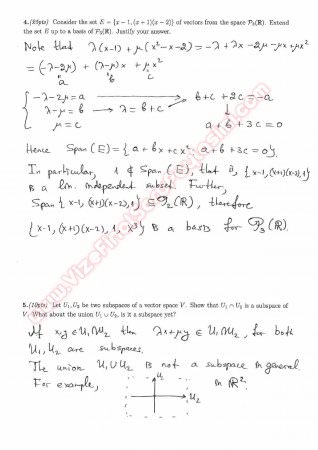 4.(25pts) Consider the set E = {x − 1, (x + 1)(x − 2)} of vectors from the space P₃(R). Extend
the set E up to a basis of P₃(R). Justify your answer.
Note that λ(x-1) + μ(x²-x-2) = -λ + λx - 2μ - μx + μx²
= (-λ-2μ) + (λ-μ)x + μx²
a b c
{ -λ-2μ = a → b+c+2c = -a
λ-μ = b → λ = b+c ↓
μ = c a+b+3c = 0
Hence Span(E) = {a+bx+cx² : a+b+3c = 0}.
In particular, 1 ∉ Span(E), that is, {x-1, (x+1)(x-2), 1}
is a lin. independent subset. Further,
Span{x-1, (x+1)(x-2), 1} = P₂(R), therefore
{x-1, (x+1)(x-2), 1, x³} is a basis for P₃(R).
5.(10pts). Let U₁, U₂ be two subspaces of a vector space V. Show that U₁ ∩ U₂ is a subspace of
V. What about the union U₁ ∪ U₂, is it a subspace yet?
If x,y ∈ U₁∩U₂ then λx+μy ∈ U₁∩U₂, for both
U₁, U₂ are subspaces.
The union U₁∪U₂ is not a subspace in general
For example, U₁ U₂ in R².